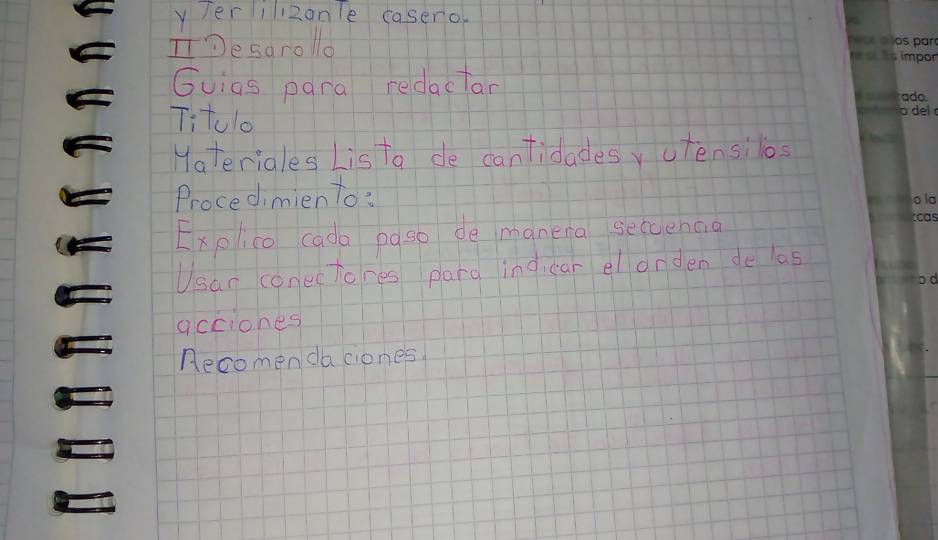 y Fertilizante casero.
II Desarollo
Guias para redactar
Titulo
Materiales Lista de cantidades y utensilios
Procedimiento:
Explico cada paso de manera secuencia
Usar conectores para indicar el orden de las
acciones
Recomendaciones.
los para
s impor
rado.
o del
o la
cas